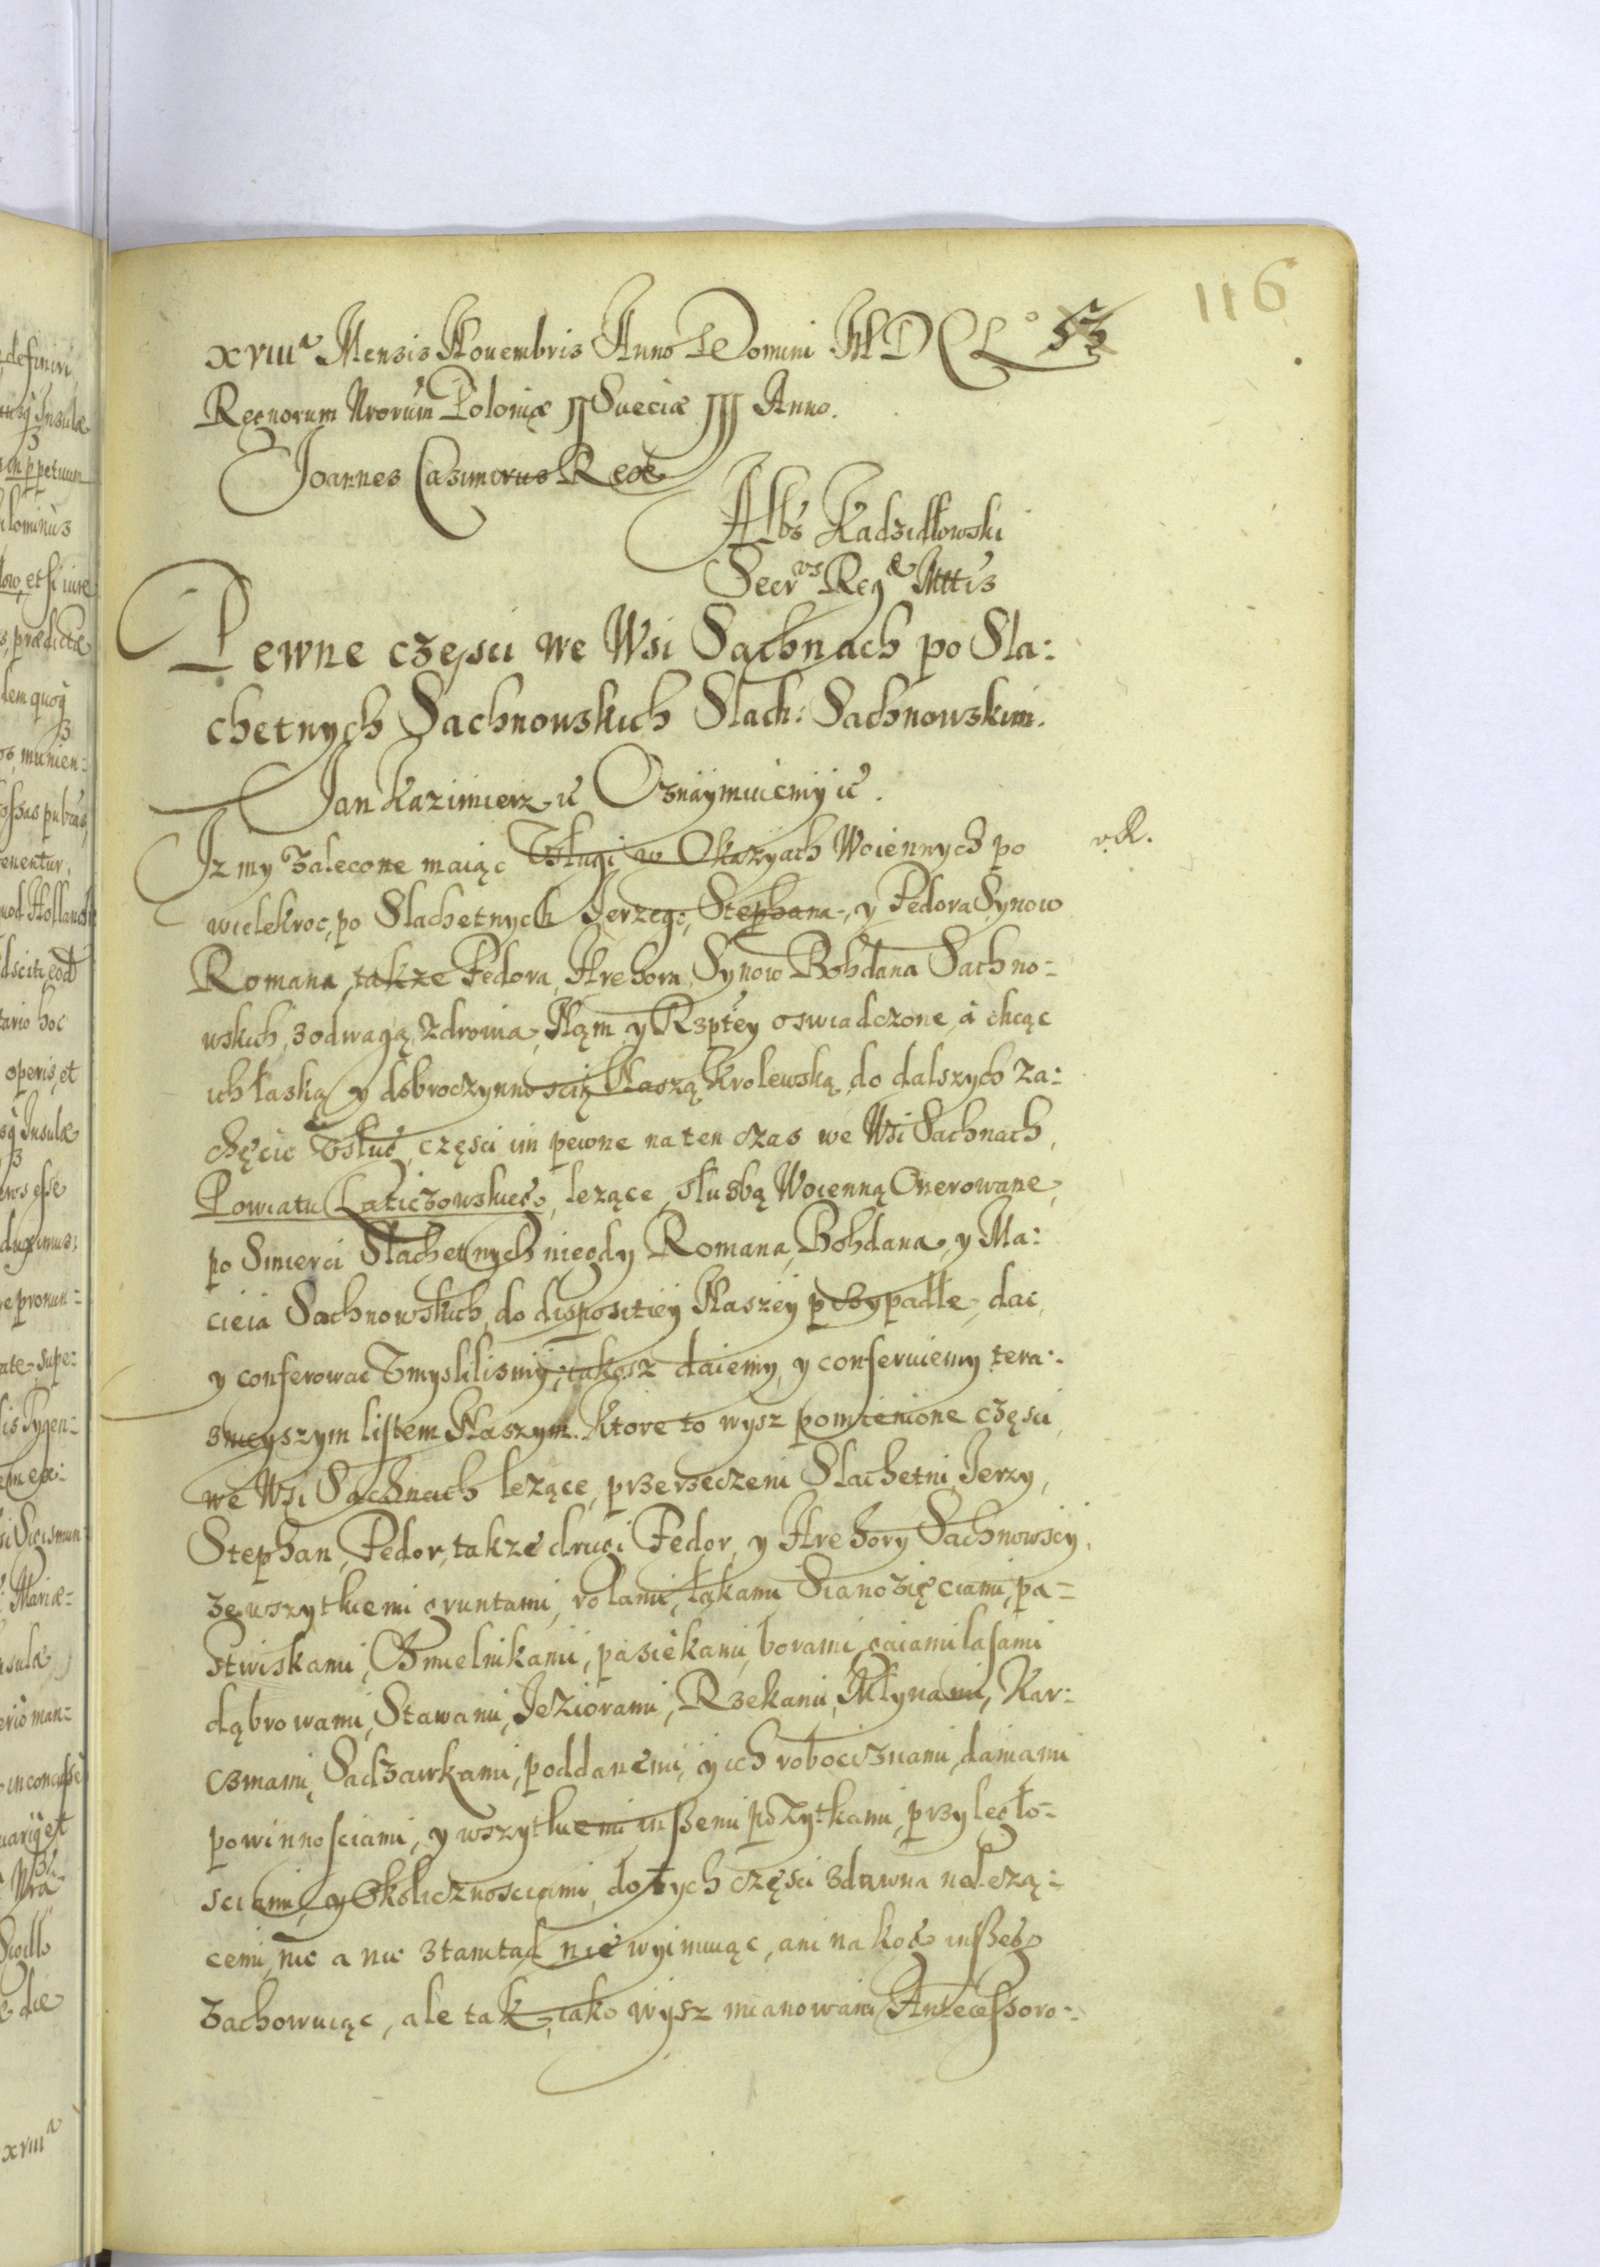 116
xviiiª Mensis Nouembris Anno Domini M D C L°
Regnorum Nrorum Poloniæ II Sueciæ III Anno.
Joannes Casimirus Rex
Albs Kadzidłowski
Secrus Regæ Mttis
Pewne częsci we Wsi Sachnach po Sla:
chetnych Sachnowskich Slach: Sachnowskim.
Jan Kazimierz etc Oznaymuiemy etc.
Iz my zalecone maiąc Vsługi w Okazyach Woiennych po
wielekroc, po Slachetnych Jerzego, Stephana, y Fedora Synow
Romana, takze Fedora, Hrehora, Synow Bohdana Sachno-
wskich, z odwagą zdrowia, Nąm y Rzptey oswiadczone, á chcąc
ich łaską y dobroczynnoscią Naszą Krolewską, do dalszych za:
chęcic Vsług, częsci im pewne na ten czas we Wsi Sachnach,
Powiatu Laticzowskiego, lezące, słuzbą Woienną Onerowane,
po Smierci Slachetnych niegdy Romana, Bohdana, y Ma:
cieia Sachnowskich, do dispositiey Naszey przypadłe, dac,
y conferowac Vmyslilismy, iakosz daiemy, y conferuiemy tera:
znieyszym listem Naszym. Ktore to wysz pomienione częsci,
we Wsi Sachnach lezące, przerzeczeni Slachetni Jerzy,
Stephan, Fedor, takze drugi Fedor, y Hrehory Sachnowscy,
ze wszytkiemi gruntami, rolami, łąkami Sianozięciami, pa-
stwiskami, Chmielnikami, pasiekami, borami, gaiami lasami
dąbrowami, Stawami, Jeziorami, Rzekami, Młynami, Kar:
czmami, Sadzawkami, poddanemi, y ich robociznami, daniami
powinnosciami, y wszytkiemi inszemi pozytkami, przyległo-
sciami, y Okolicznosciami, do tych częsci zdawna nalezą:
cemi, nic a nic ztamtąd nie wyimuiąc, ani na kogo inszego
zachowuiąc, ale tak, iako wysz mianowani Antecessoro: